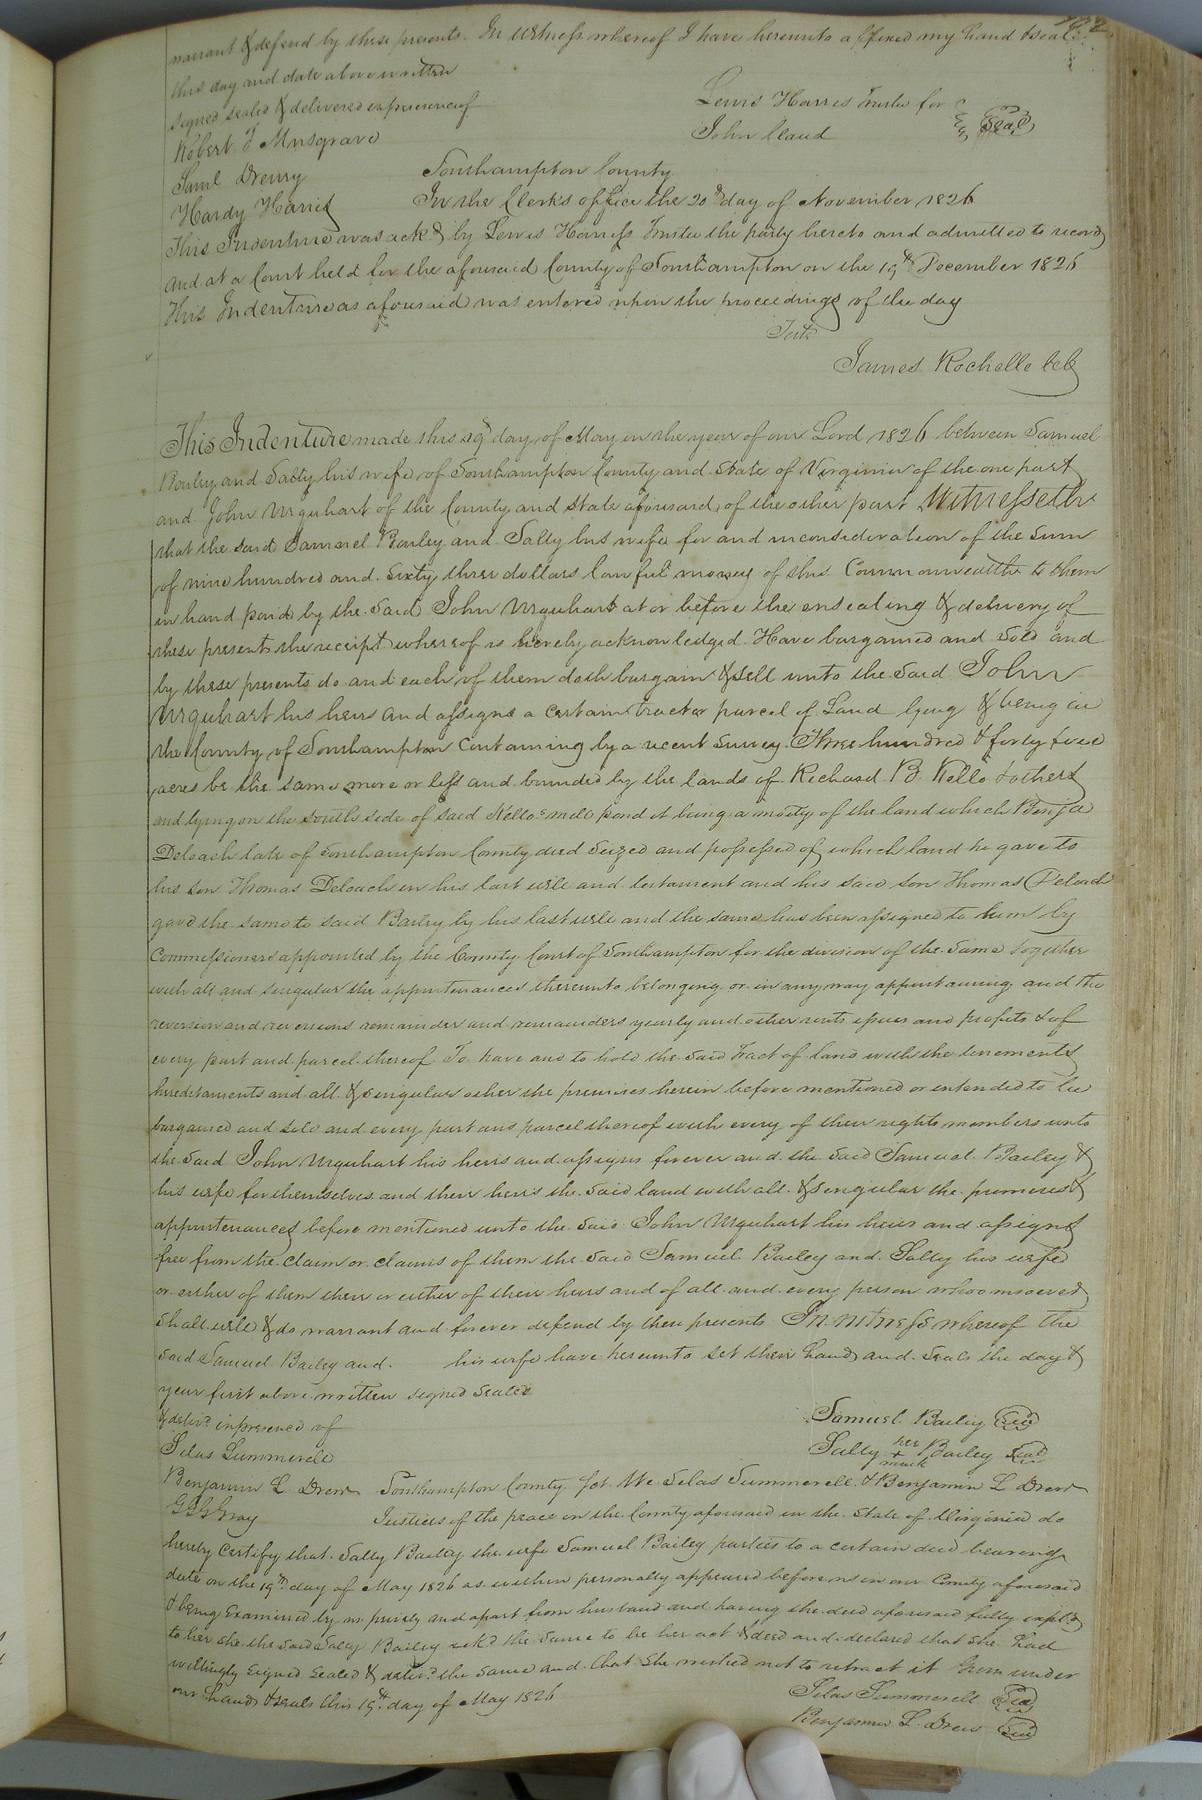 warrant & defend by these presents. In Witness whereof I have hereunto affixed my hand & seal
this day and date above written
signed sealed & delivered in presence of
Lewis Harris Trustee for
John Claud
Seal
Robert T Musgrave
Saml Drewry
Hardy Harris
Southampton County
In the Clerks office the 20th day of November 1826
This Indenture was ackd by Lewis Harriss Trustee the party hereto and admitted to record
and at a Court held for the aforesaid County of Southampton on the 19th December 1826
This Indenture as aforesaid was entered upon the proceedings of the day
Teste
James Rochelle Clk
This Indenture made this 19th day of May in the year of our Lord 1826 between Samuel
Bailey and Sally his wife of Southampton County and State of Virginia of the one part
and John Urquhart of the County and state aforesaid of the other part Witnesseth
that the said Samuel Bailey and Sally his wife for and in consideration of the sum
of nine hundred and sixty three dollars lawful money of this Commonwealth to them
in hand paid by the said John Urquhart at or before the ensealing & delivery of
these presents the receipt whereof is hereby acknowledged Have bargained and sold and
by these presents do and each of them doth bargain & sell unto the said John
Urquhart his heirs and assigns a certain tract or parcel of Land lying & being in
the County of Southampton Containing by a recent survey Three hundred & forty five
acres be the same more or less and bounded by the lands of Richard B. Kello & others
and lying on the south side of said Kellos mill pond it being a moity of the land which Benja
Deloach late of Southampton County died seized and possessed of which land he gave to
his son Thomas Deloach in his last will and testament and his said son Thomas Deloach
gave the same to said Bailey by his last will and the same has been assigned to him by
Commissioners appointed by the County Court of Southampton for the division of the same together
with all and singular the appurtenances thereunto belonging or in any way appertaining and the
reversion and reversions remainder and remainders yearly and other rents issues and profits & of
every part and parcel thereof To have and to hold the said tract of land with the tenements
hereditaments and all & singular other the premises herein before mentioned or intended to be
bargained and sold and every part and parcel thereof with every of their rights members unto
the said John Urquhart his heirs and assigns forever and the said Samuel Bailey &
his wife for themselves and their heirs the said land with all & singular the premises &
appurtenances before mentioned unto the said John Urquhart his heirs and assigns
free from the claim or claims of them the said Samuel Bailey and Sally his wife
or either of them their or either of their heirs and of all and every person whomsoever
shall will & do warrant and forever defend by these presents In witness whereof the
said Samuel Bailey and his wife have hereunto set their hands and seals the day &
year first above written signed sealed
& delivd in presence of
Samuel Bailey Seal
Silas Summerell
Sally her + mark Bailey Seal
Benjamin L Drew
Southampton County Sct. We Silas Summerell & Benjamin L Drew
Gray
Justices of the peace in the County aforesaid in the State of Virginia do
hereby certify that Sally Bailey the wife Samuel Bailey parties to a certain deed bearing
date on the 19th day of May 1826 as within personally appeared before us in our County aforesaid
& being Examined by us privily and apart from husband and having the deed aforesaid fully expld
to her she the said Sally Bailey ackd the same to be her act & deed and declared that she had
willingly signed sealed & delivd the same and that she wished not to retract it Given under
our hands & seals this 19th day of May 1826
Silas Summerell Seal
Benjamin L. Drew Seal